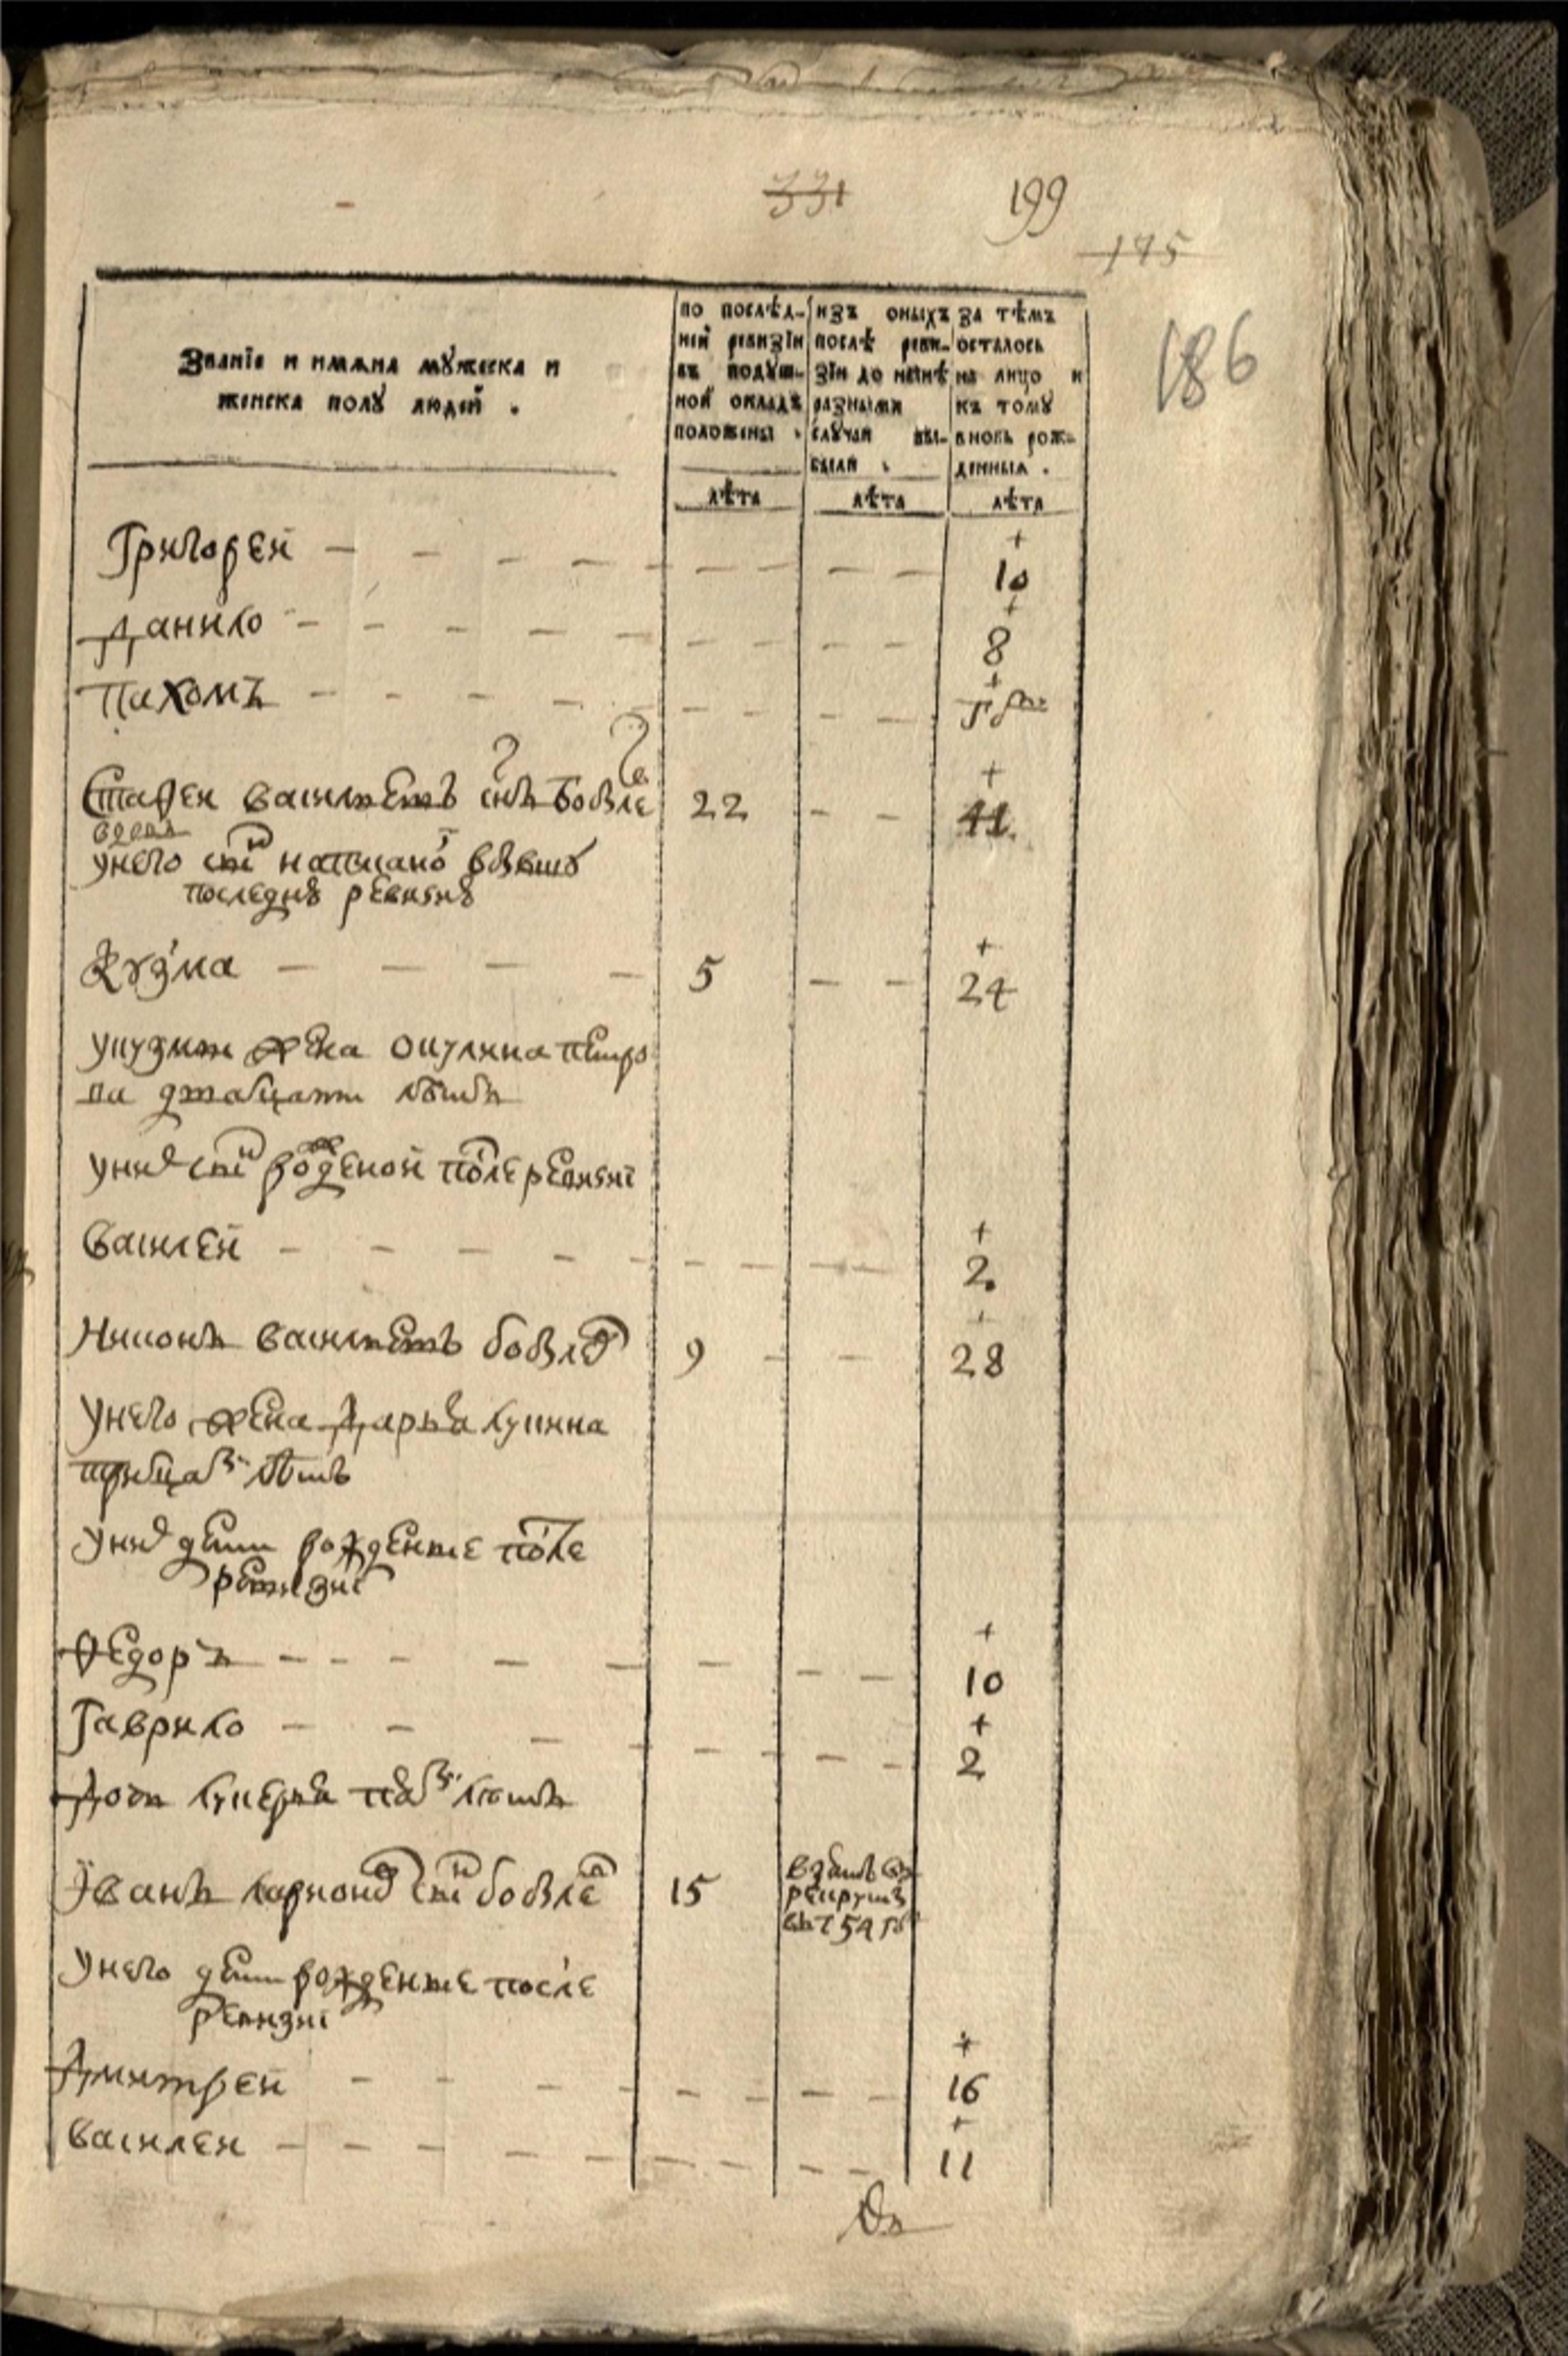 331 199
175
186
Званїе и имяна мꙋжеска и
женска полꙋ людей .
по послѣд-
ней ревизїи
въ подꙋш-
ной окладъ
положены .
изъ оныхъ
послѣ реви-
зїи до нынѣ
разными
слꙋчаи вы-
были .
за тѣмъ
осталось
на лицо и
къ томꙋ
вновь рож-
денныя .
лѣта лѣта лѣта
Григорей — — — — — — — — +10
Данило — — — — — — — — +8
Пахомъ — — — — — — — — +
Стафеи васильевъ снъ бобылев 22 — — + 41
унего снъ написаной вбывшꙋ
последнꙋ ревизиꙋ
Кузма — — — — 5 — — + 24
укузмы жена окулина петро
ва дватцати лѣтъ
унихъ снъ рожденой после ревизиї
Василей — — — — — — — — — + 2.
Никонъ васильевъ бобылев 9 — — + 28
Унего жена Дарья лукина
тритцати лѣтъ
Унихъ дети рожденые после
ревизиї
Федоръ — — — — — — — — + 10
Гаврило — — — — — — — + 2
Дочь лукерья лѣтъ
Їванъ ларионов снъ бобылев 15 взятъ въ
рекруты
въ 754 г
Унего дети рожденые после
ревизиї
Дмитрей — — — — — — — — + 16
василеи — — — — — — — — + 11